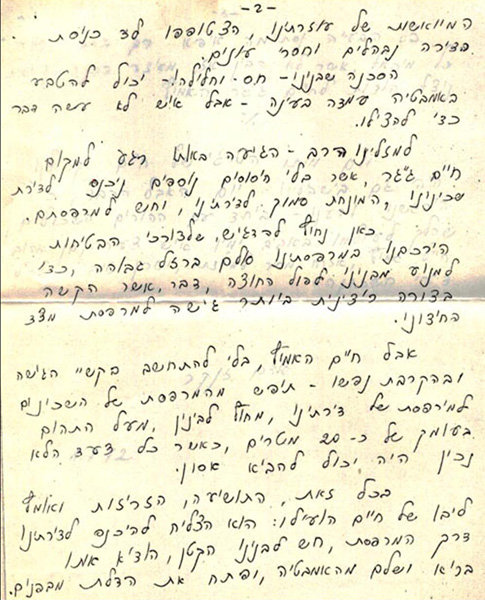 -2-
המיואשות של עוזרתינו, הצטופפו ליד כניסת
הדירה נבהלים וחסרי עונים.
הסכנה שבנינו - חס וחלילה - יכול להטבע
באמבטיה עמדה בעינה - אבל איש לא עשה דבר
כדי להצילו.
למזלינו הרב - הגיעה באותו רגע למקום
חיים ג'גר, אשר בלי היסוסים נוספים ניכנס לדירת
שכינינו, המונחת סמוך לדירתינו, וחש למרפסתם.
כאן נחוץ להדגיש, שלצורכי הבטיחות
הירכבנו במרפסתינו סולם ברזל גבוהה, כדי
למנוע מבנינו ליפול החוצה, דבר, אשר הקשה
בצורה רצינית ביותר גישה למרפסת מצד
החיצוני.
אבל חיים האמיץ, בלי להתחשב בקשיי הגישה
ובהקרבת נפשו - טיפש מהמרפסת של השכינים
למירפסת של דירתינו, מחוץ לבנין, מעל התהום
בעומק של כ- 20 מטרים, כאשר כל צעד הלא
נכון היה יכול להביא אסון.
בכל זאת, התושיעה, הזריזות ואומץ
ליבו של חיים הועילו: הוא הצליח להיכנס לדירתנו
דרך המרפסת, חש לבנינו הקטן, הוציא אותו
בריא ושלם מהאמבטיה, ופתח את הדלת מבפנים.